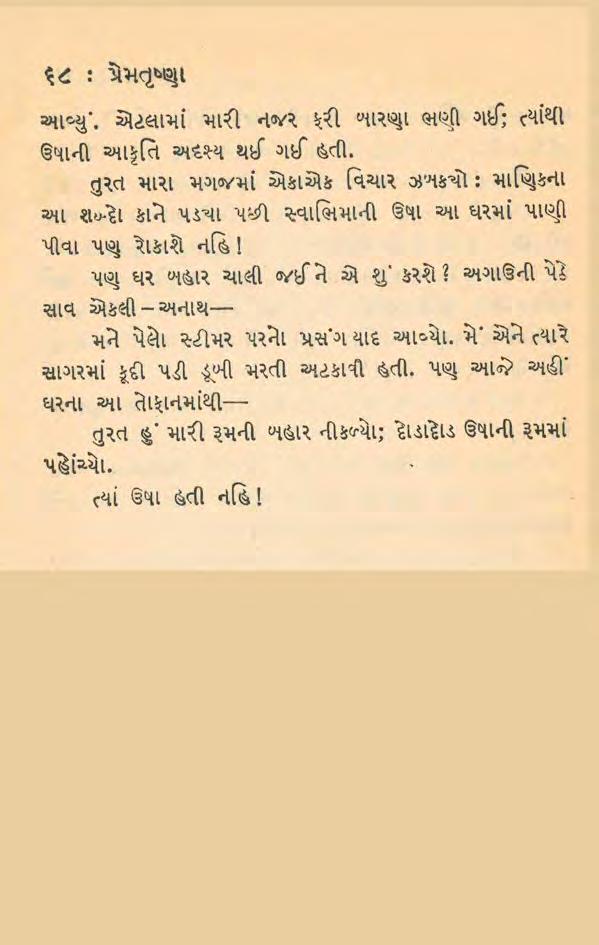 ૬૮ : પ્રેમતૃષ્ણા
આવ્યું. એટલામાં મારી નજર ફરી બારણા ભણી ગઈ; ત્યાંથી
ઉષાની આકૃતિ અદશ્ય થઈ ગઈ હતી.
તુરત મારા મગજમાં એકાએક વિચાર ઝબકયો : માણિકના
આ શબ્દો કાને પડયા પછી સ્વાભિમાની ઉષા આ ઘરમાં પાણી
પીવા પણ રોકાશે નહિ !
પણ ઘર બહાર ચાલી જઈને એ શું કરશે ? અગાઉની પેઠે
સાવ એકલી – અનાથ—
મને પેલો સ્ટીમર પરનો પ્રસંગ યાદ આવ્યો. મેં એને ત્યારે
સાગરમાં કૂદી પડી ડૂબી મરતી અટકાવી હતી. પણ આજે અહીં
ઘરના આ તોફાનમાંથી—
તુરત હું મારી રૂમની બહાર નીકળ્યો; દોડાદોડ ઉષાની રૂમમાં
પહોંચ્યો.
ત્યાં ઉષા હતી નહિ !